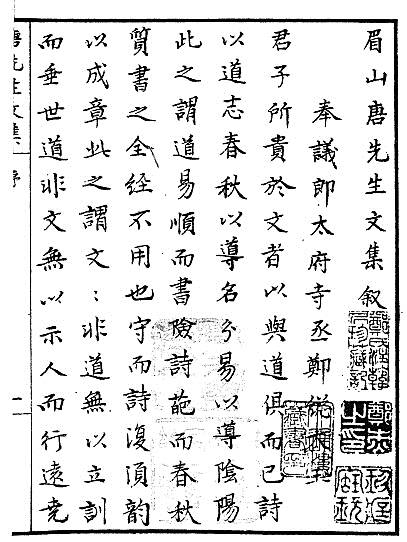 眉山唐先生文集叙
奉議郎太府寺丞鄭
君子所貴於文者以與道俱而已詩
以道志春秋以導名分易以導陰陽
此之謂道易順而書險詩葩而春秋
質書之全經不用也字而詩復須韵
以成章此之謂文〻非道無以立訓
而垂世道非文無以示人而行遠堯
唐先生文集 序 一
鄭杰之印